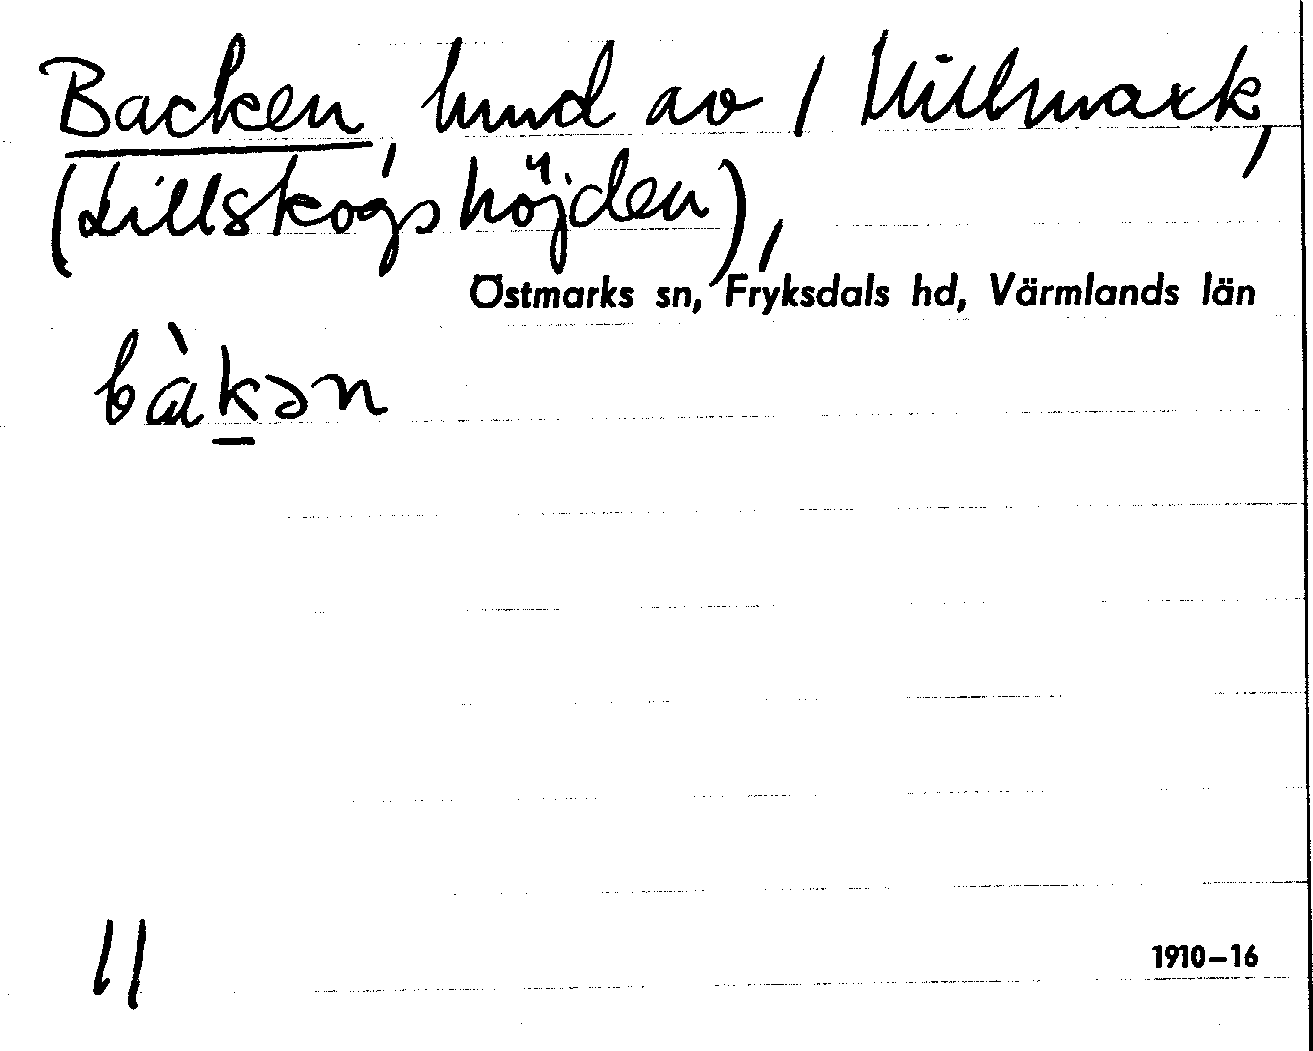 Backen, hmd av 1 Millmark,
(Lillskogshöjden),
Östmarks sn, Fryksdals hd, Värmlands län
bàkən
11
1910–16